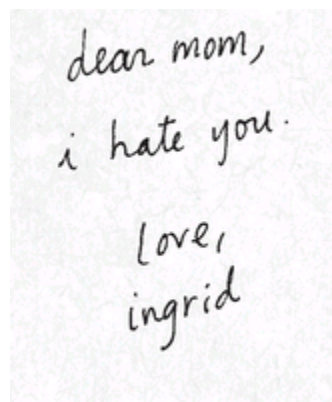 dear mom,
i hate you.
love,
ingrid